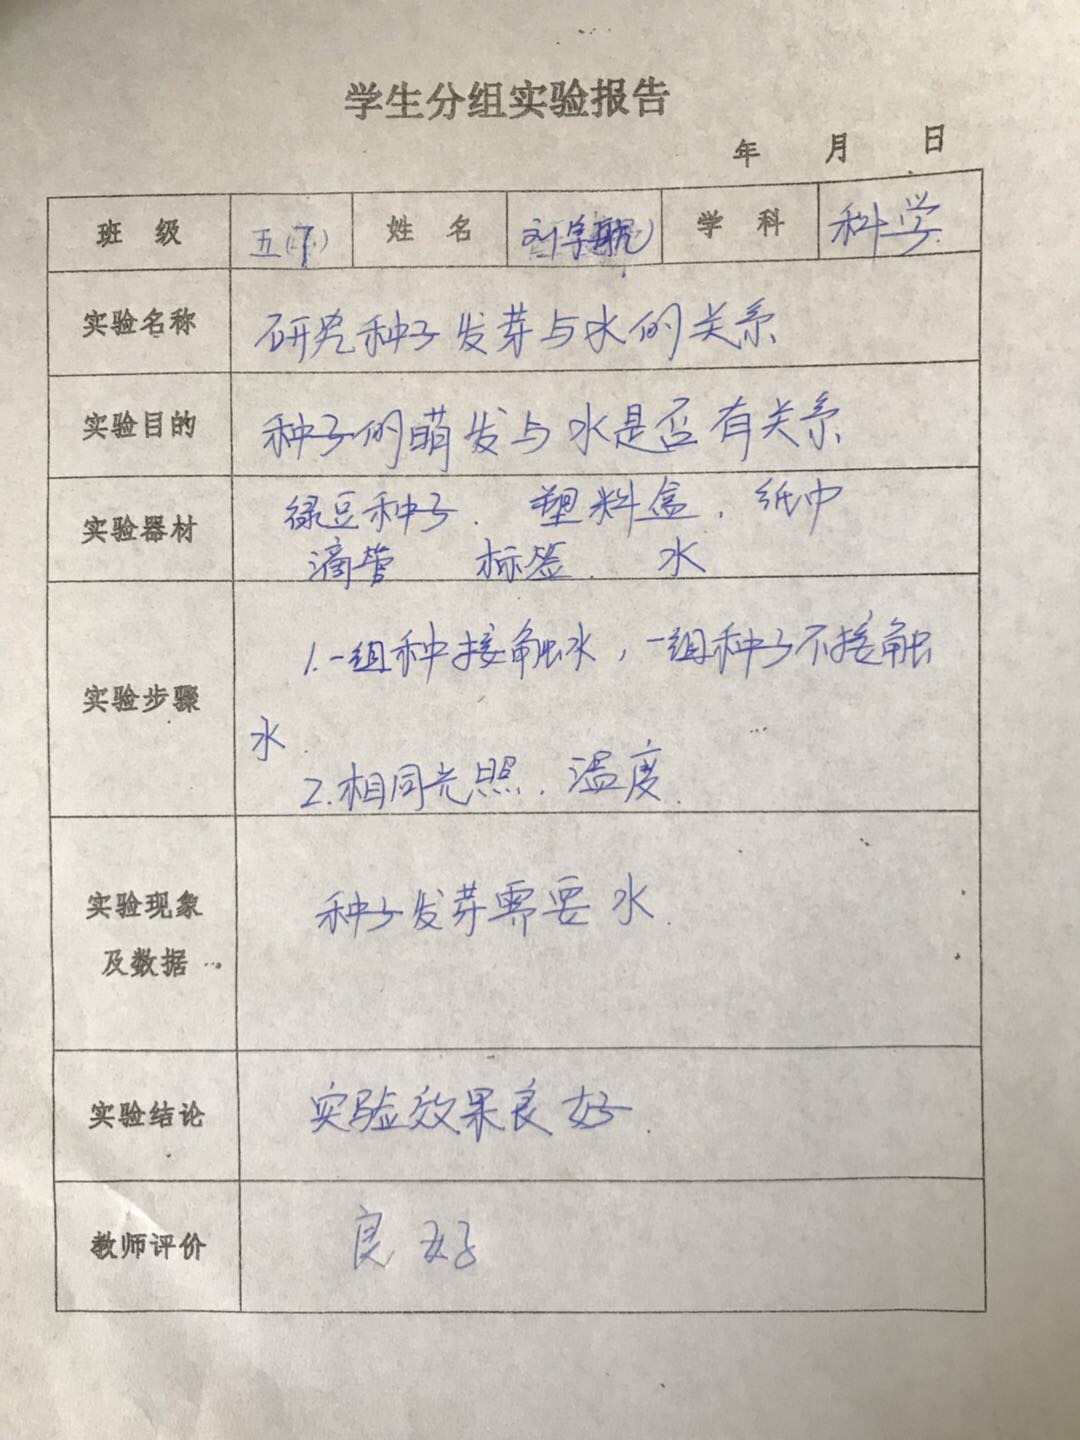 学生分组实验报告
年 月 日
班 级 五(7) 姓 名 刘学航 学 科 科学
实验名称 研究种子发芽与水的关系
实验目的 种子的萌发与水是否有关系
实验器材 绿豆种子. 塑料盒. 纸巾
滴管 标签. 水
实验步骤 1.一组种接触水，一组种子不接触
水.
2.相同光照.温度.
实验现象 种子发芽需要水.
及数据
实验结论 实验效果良好.
教师评价 良好